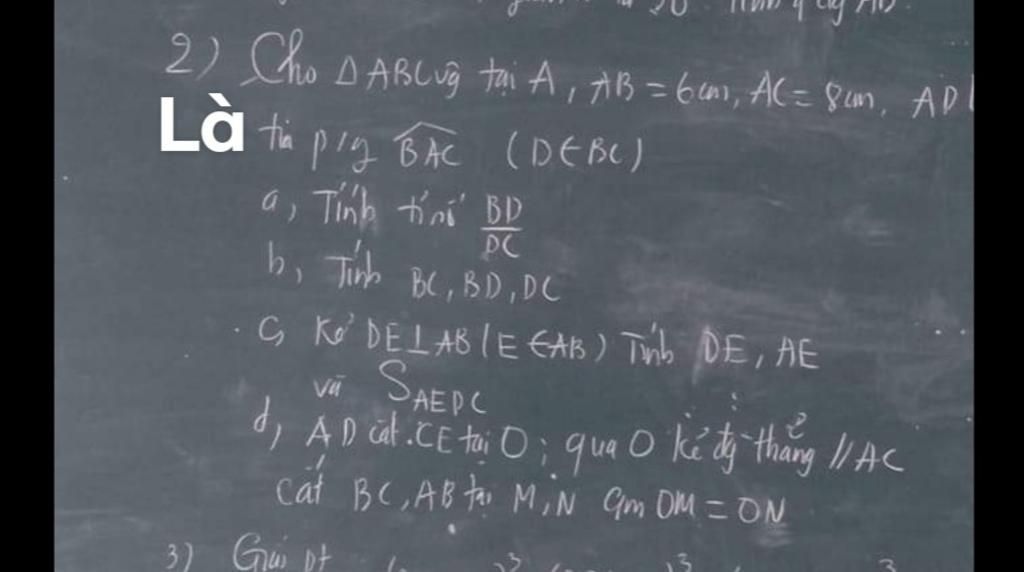 2) Cho Δ ABC vg tại A, AB = 6cm, AC = 8cm, AD
Là tia p/g BAC (D ∈ BC)
a, Tính tỉ số BD/DC
b, Tính BC, BD, DC
c, Kẻ DE ⊥ AB (E ∈ AB) Tính DE, AE
và S AEDC
d, AD cắt CE tại O; qua O kẻ đg thẳng // AC
cắt BC, AB tại M, N cm OM = ON
3) Giải pt